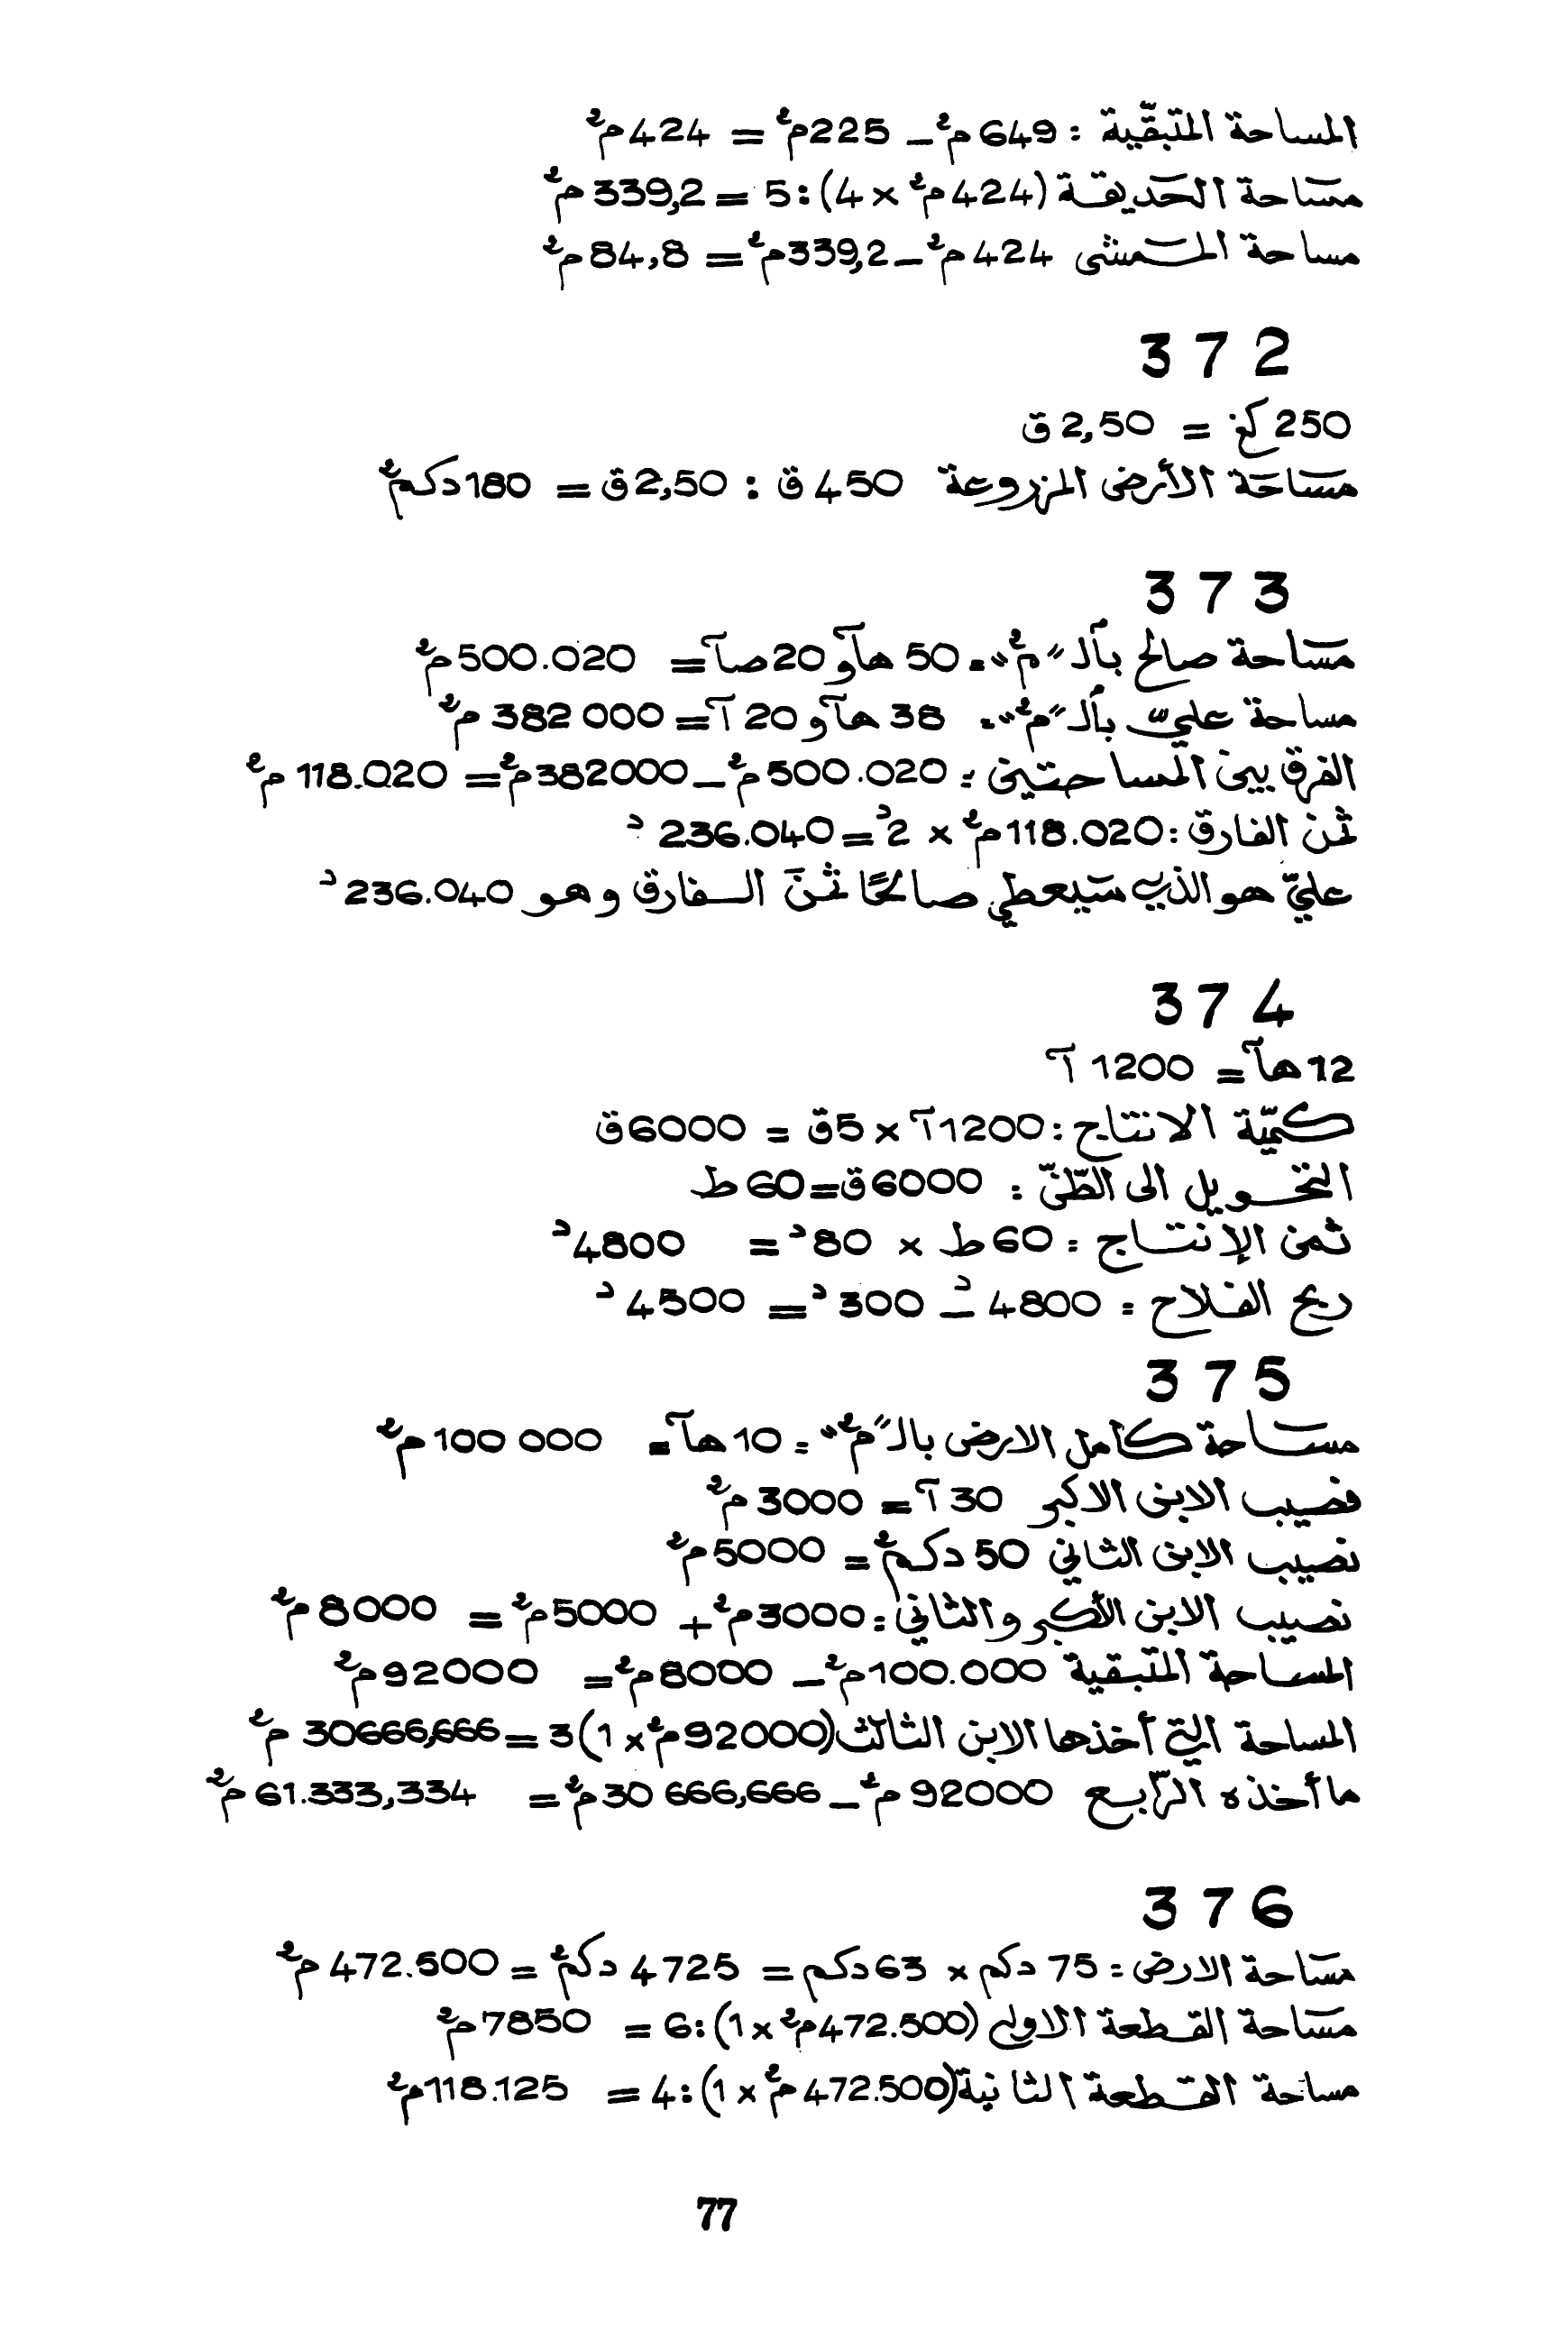 المساحة المتبقّية : 649م² _ 225م² = 424م²
مسَاحة الحَديقة (424م² × 4) : 5 = 339,2م²
مساحة الممشى 424م² _ 339,2م² = 84,8م²
372
250 كغ = 2,50 ق
مسَاحَة الأرض المزروعة 450 ق : 2,50 ق = 180 دكم²
373
مسَاحة صالح بالـ "م²" = 50 هآ و 20 صآ = 500.020 م²
مساحة عليّ بالـ "م²" = 38 هآ و 20 آ = 382 000 م²
الفرق بين المساحتين : 500.020 م² _ 382000 م² = 118.020 م²
ثمن الفارق : 118.020 م² × 2د = 236.040 د
عليّ هو الذي سَيعطي صالحًا ثمنَ الفارق وهو 236.040 د
374
12 هآ = 1200 آ
كميّة الانتاج : 1200 آ × 5ق = 6000 ق
التحويل الى الطّنّ : 6000 ق = 60 ط
ثمن الإنتاج : 60 ط × 80 د = 4800 د
ربح الفلاح : 4800 د _ 300 د = 4500 د
375
مسَاحة كامل الارض بالـ "م²" : 10 هآ = 100 000 م²
نصيب الابن الاكبر 30 آ = 3000 م²
نصيب الابن الثاني 50 دكم² = 5000 م²
نصيب الابن الأكبر والثاني : 3000 م² + 5000 م² = 8000 م²
المساحة المتبقية 100.000 م² _ 8000 م² = 92000 م²
المساحة التي أخذها الابن الثالث (92000 م² × 1) 3 = 30666,666 م²
ما أخذه الرّابع 92000 م² _ 30 666,666 م² = 61.333,334 م²
376
مسَاحة الارض : 75 دكم × 63 دكم = 4725 دكم² = 472.500 م²
مسَاحة القطعة الاولى (472.500 م² × 1) : 6 = 7850 م²
مساحة القطعة الثانية (472.500 م² × 1) : 4 = 118.125 م²
77